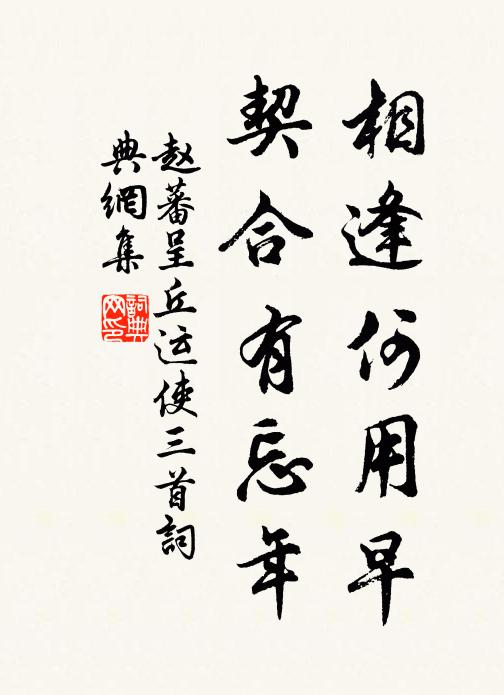 相逢何用早
契合有忘年
赵蕃呈丘运使三首詞
典網集
詞典网印